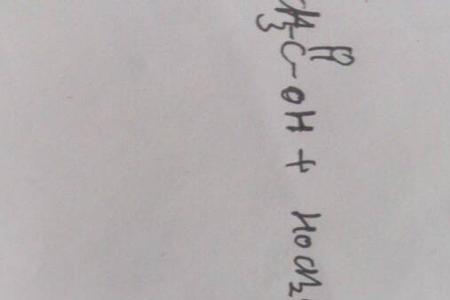 O
CH₃-C-OH + HOCH₂